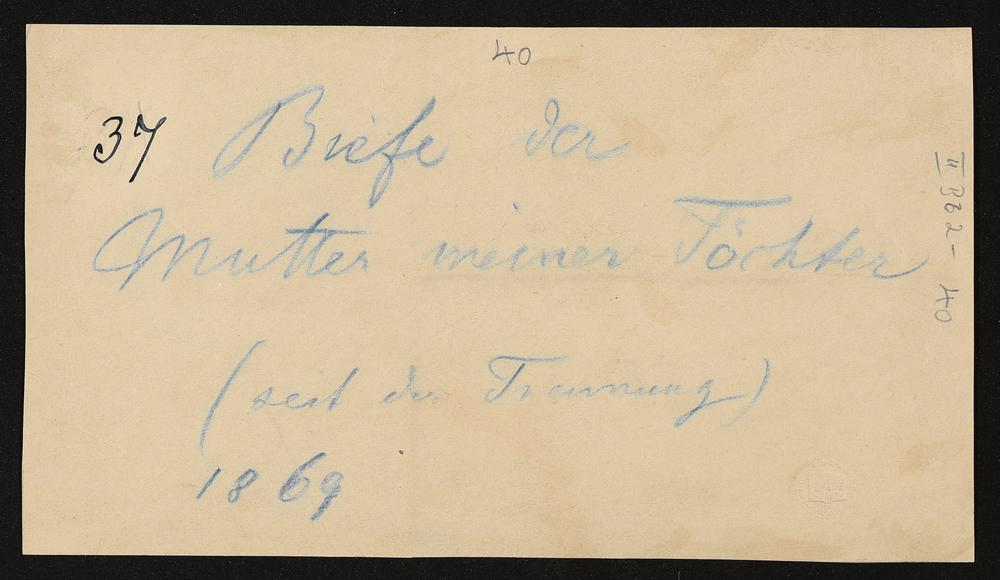 40
37 Briefe der
Mutter meiner Töchter
(seit der Trennung)
1869
II BB2 - 40